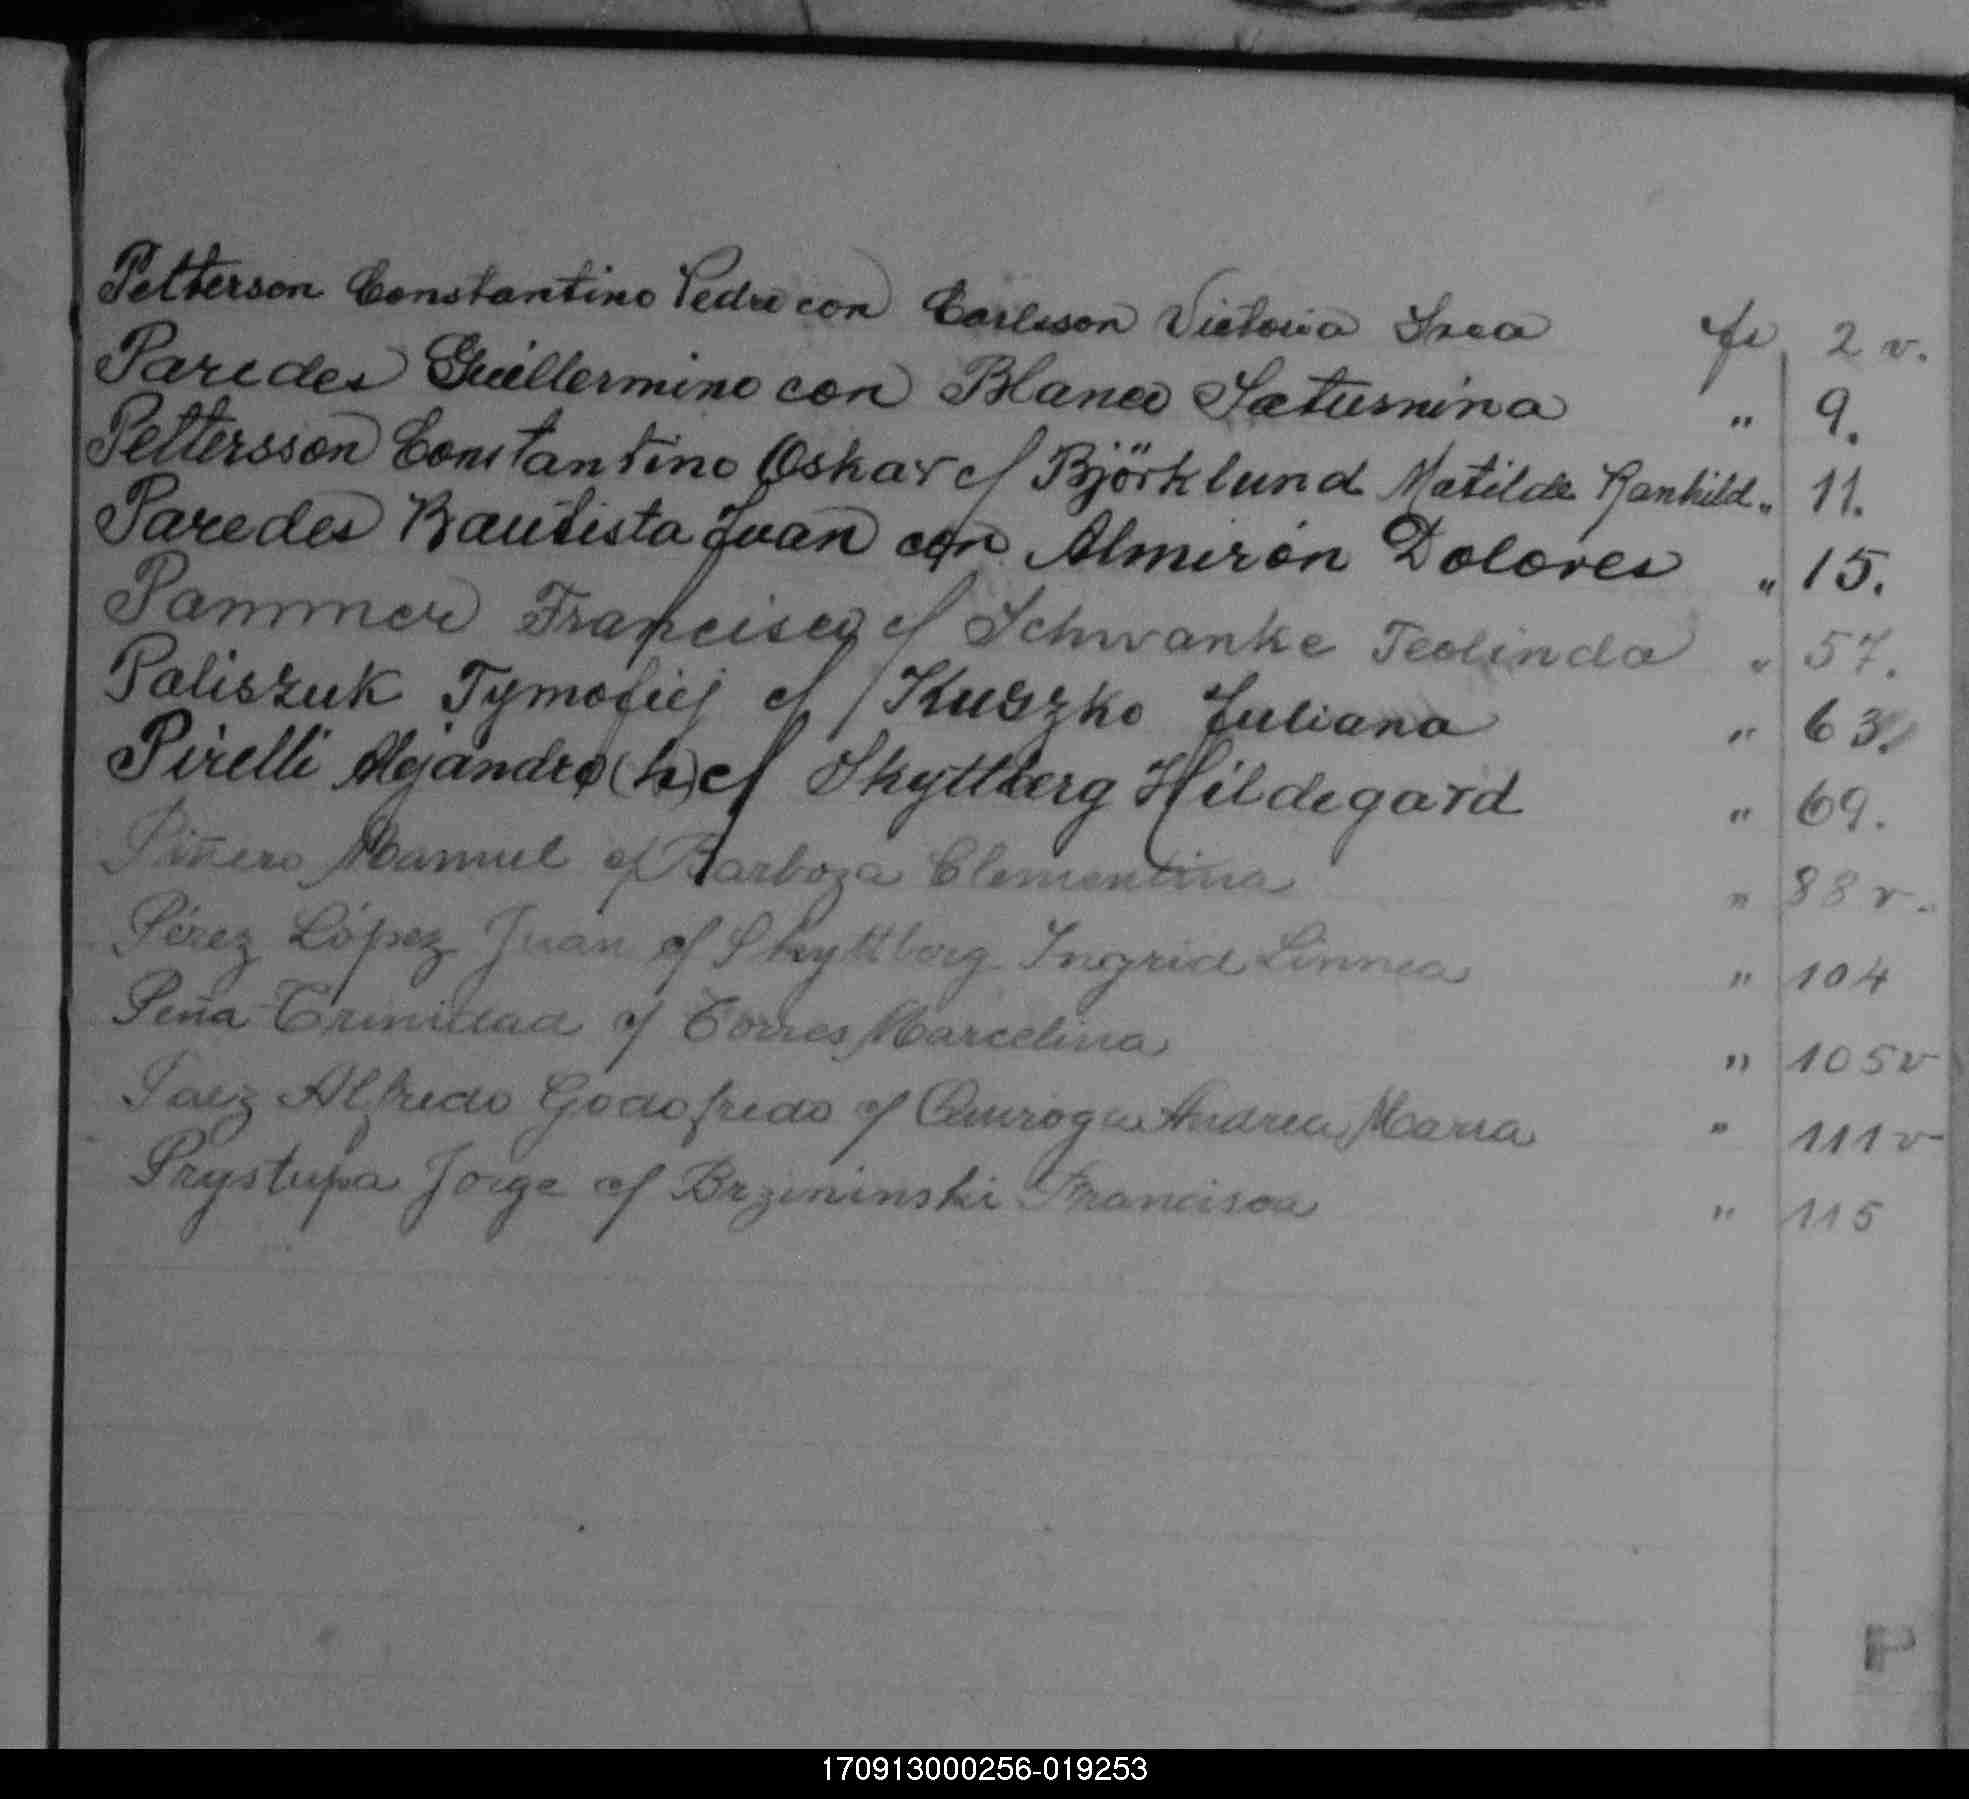 Petterson Constantino Pedro con Carlsson Victoria Svea fs 2 v.
Paredes Guillermino con Blanco Saturnina " 9.
Pettersson Constantino Oskar c/ Björklund Matilde Ranhild " 11.
Paredes Bautista Juan con Almirón Dolores " 15.
Pammer Francisco c/ Schwanke Teolinda " 57.
Paliszuk Tymofiej c/ Kuszko Juliana " 63.
Pirelli Alejandro (h) c/ Skyttberg Hildegard " 69.
Piñero Manuel c/ Barboza Clementina " 88 v.
Pérez López Juan c/ Skyttberg Ingrid Linnea " 104
Peña Trinidad c/ Torres Marcelina " 105 v
Paez Alfredo Godofredo c/ Quiroga Andrea María " 111 v
Prystupa Jorge c/ Brzeninski Francisca " 115
P
170913000256-019253